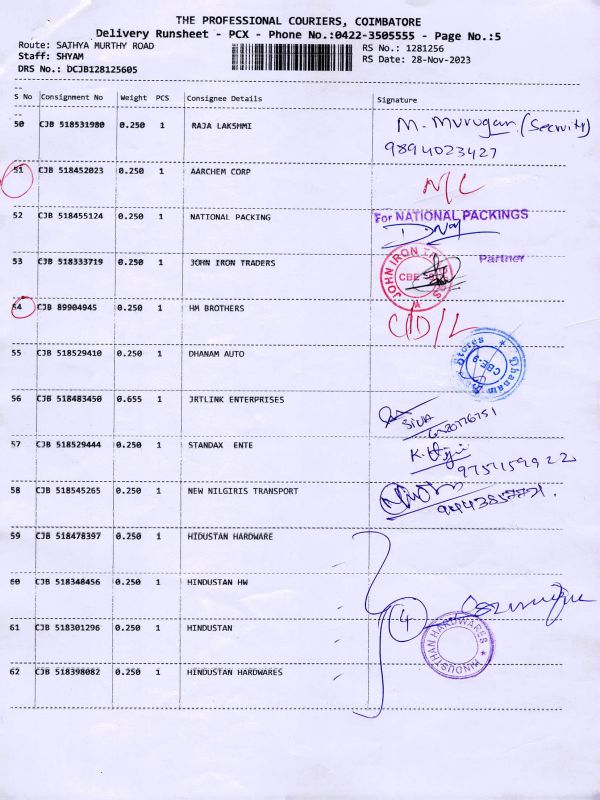 THE PROFESSIONAL COURIERS, COIMBATORE
Delivery Runsheet - PCX - Phone No.:0422-3505555 - Page No.:5
Route: SATHYA MURTHY ROAD RS No.: 1281256
Staff: SHYAM RS Date: 28-Nov-2023
DRS No.: DCJB128125605
S No Consignment No Weight PCS Consignee Details Signature
50 CJB 518531980 0.250 1 RAJA LAKSHMI M. Murugan (Security)
9894023427
51 CJB 518452023 0.250 1 AARCHEM CORP N/C
52 CJB 518455124 0.250 1 NATIONAL PACKING For NATIONAL PACKINGS
Partner
53 CJB 518333719 0.250 1 JOHN IRON TRADERS JOHN IRON CBE
54 CJB 89904945 0.250 1 HM BROTHERS C/D/L
55 CJB 518529410 0.250 1 DHANAM AUTO Dhanam Stores CBE-9
56 CJB 518483450 0.655 1 JRTLINK ENTERPRISES SIVA
57 CJB 518529444 0.250 1 STANDAX ENTE K.
9751159922
58 CJB 518545265 0.250 1 NEW NILGIRIS TRANSPORT
59 CJB 518478397 0.250 1 HIDUSTAN HARDWARE
60 CJB 518348456 0.250 1 HINDUSTAN HW
61 CJB 518301296 0.250 1 HINDUSTAN 4 HINDUSTHAN HARDWARES
62 CJB 518398082 0.250 1 HINDUSTAN HARDWARES